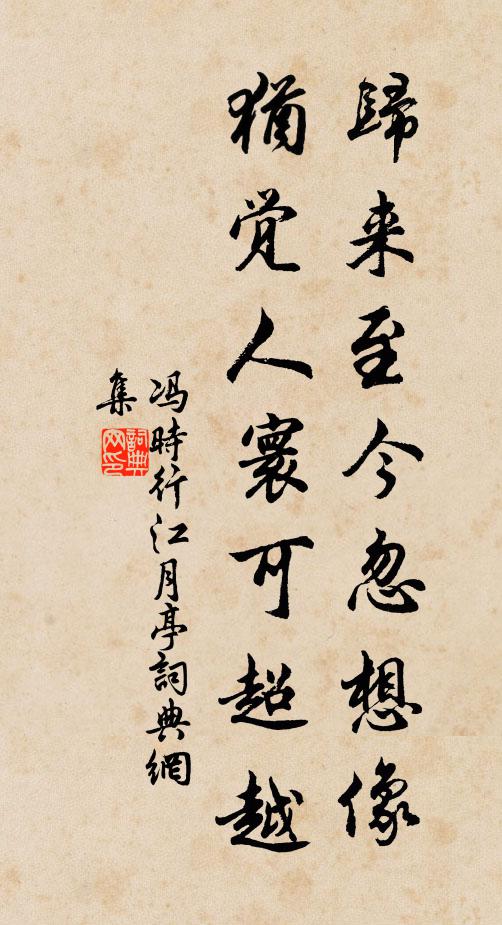 歸来至今忽想像
猶觉人寰可超越
冯時行江月亭詞典網
集
詞典网印